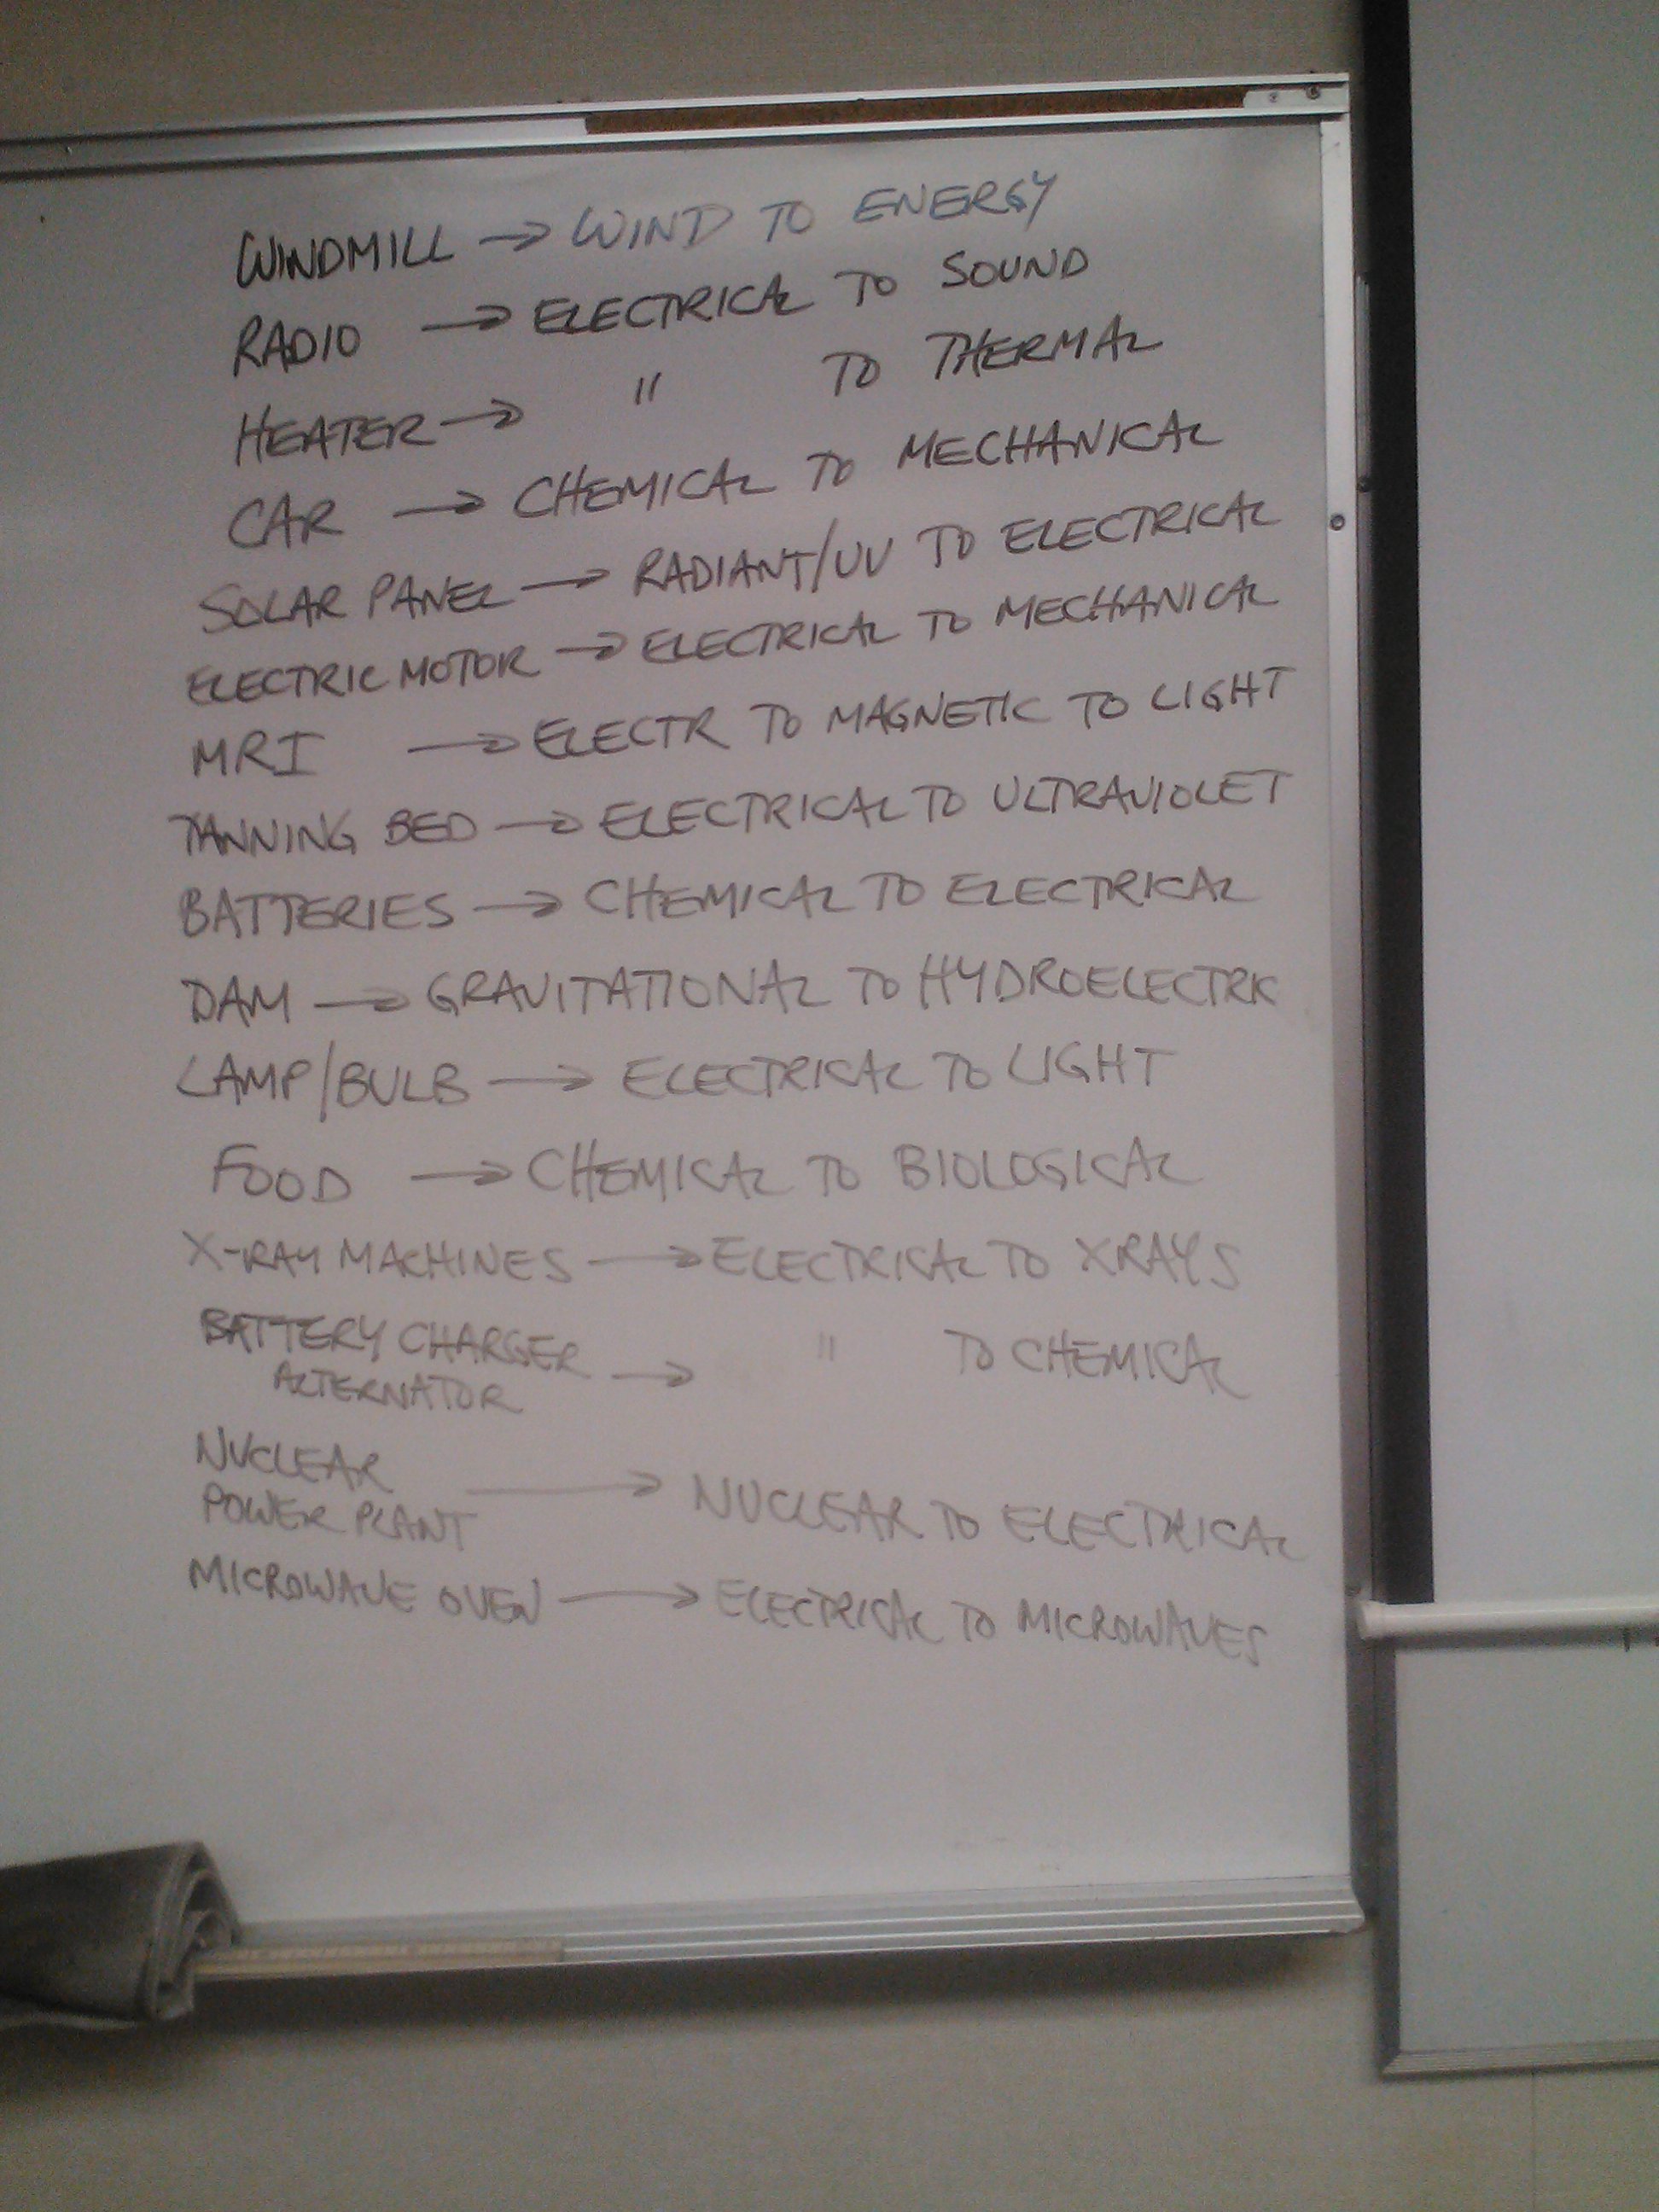 WINDMILL → WIND TO ENERGY
RADIO → ELECTRICAL TO SOUND
HEATER → " TO THERMAL
CAR → CHEMICAL TO MECHANICAL
SOLAR PANEL → RADIANT/UV TO ELECTRICAL
ELECTRIC MOTOR → ELECTRICAL TO MECHANICAL
MRI → ELECTR TO MAGNETIC TO LIGHT
TANNING BED → ELECTRICAL TO ULTRAVIOLET
BATTERIES → CHEMICAL TO ELECTRICAL
DAM → GRAVITATIONAL TO HYDROELECTRIC
LAMP/BULB → ELECTRICAL TO LIGHT
FOOD → CHEMICAL TO BIOLOGICAL
X-RAY MACHINES → ELECTRICAL TO XRAYS
BATTERY CHARGER → " TO CHEMICAL
ALTERNATOR
NUCLEAR
POWER PLANT → NUCLEAR TO ELECTRICAL
MICROWAVE OVEN → ELECTRICAL TO MICROWAVES